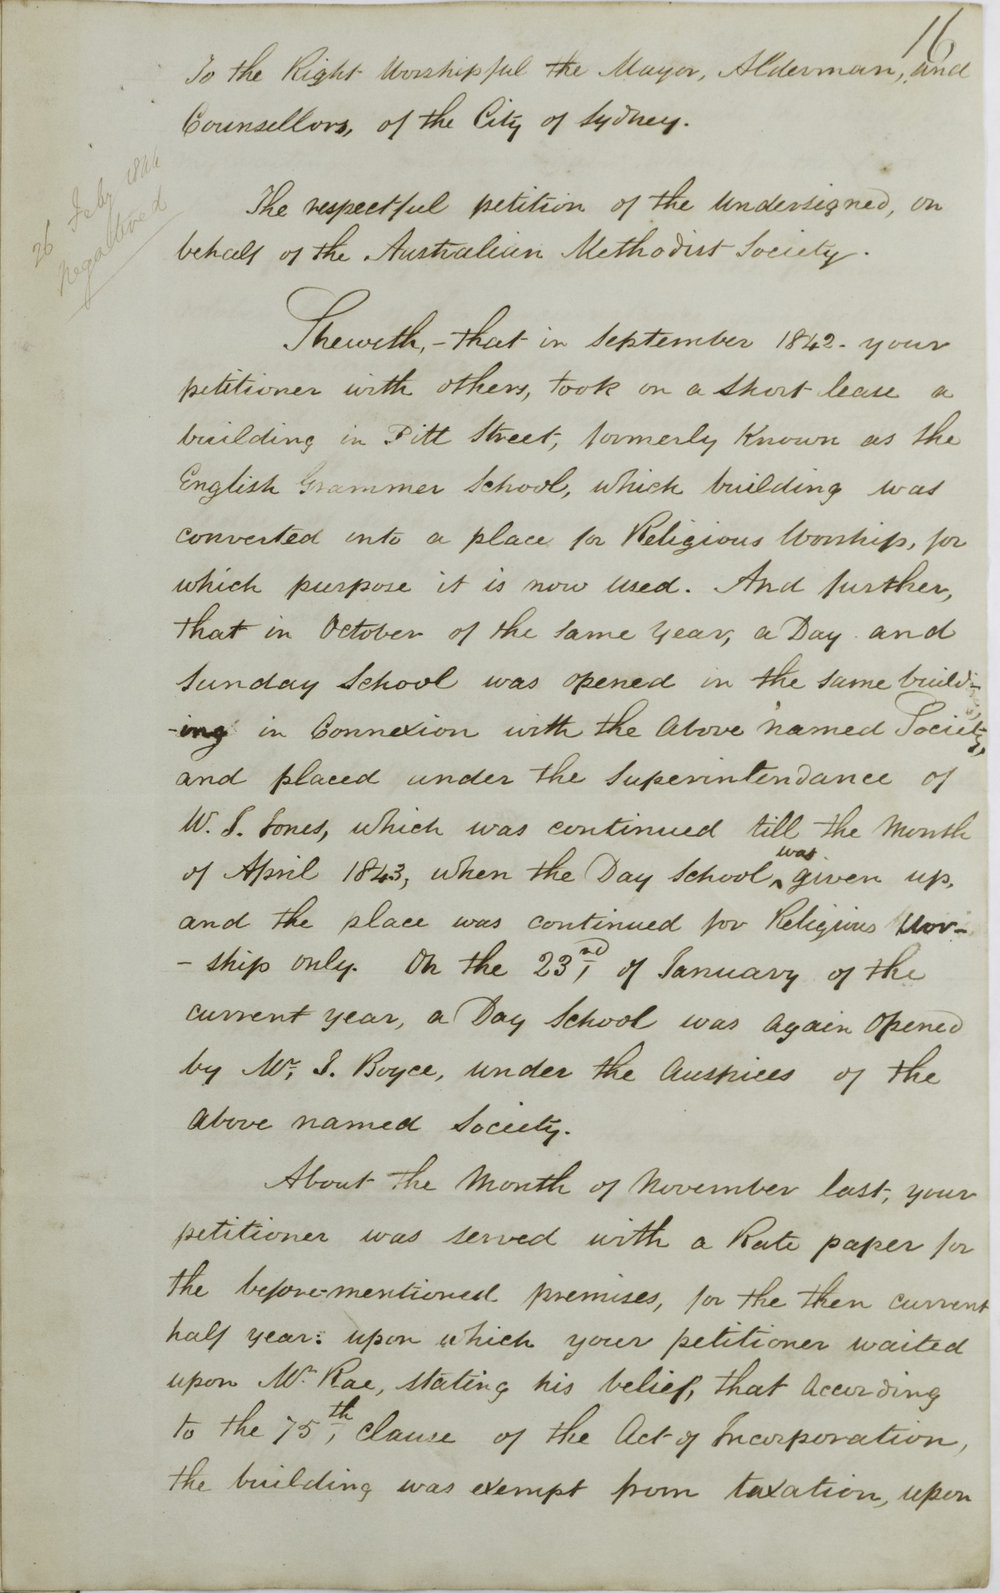 16
To the Right Worshipful the Mayor, Alderman, and
Counsellors, of the City of Sydney.
26 Feby 1844
Negatived
The respectful petition of the Undersigned, on
behalf of the Australian Methodist Society.
Sheweth, - that in September 1842. your
petitioner with others, took on a short lease a
building in Pitt Street, formerly Known as the
English Grammer School, which building was
converted into a place for Religious Worship, for
which purpose it is now used. And further,
that in October of the same Year, a Day and
Sunday School was opened in the same build-
-ing in Connexion with the above named Society,
and placed under the Superintendance of
W. J. Jones, which was continued till the Month
of April 1843, when the Day School, was given up,
and the place was continued for Religious Wor-
-ship only. On the 23rd, of January of the
current year, a Day School was again opened
by Mr. J. Boyce, under the Auspices of the
above named Society.
About the Month of November last, your
petitioner was served with a Rate paper for
the before-mentioned premises, for the then current
half year: upon which your petitioner waited
upon Mr. Rae, stating his belief, that according
to the 75th, clause of the Act of Incorporation,
the building was exempt from taxation, upon